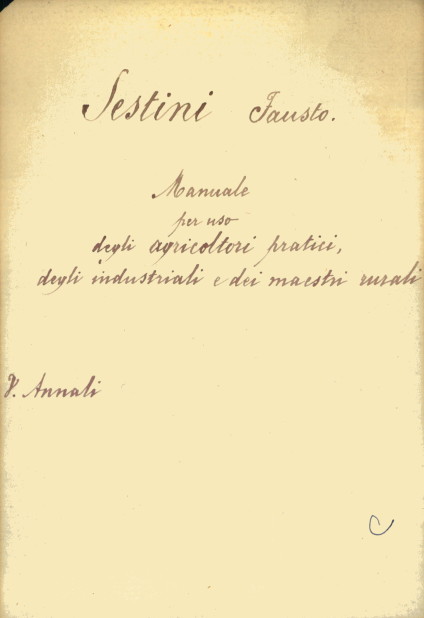 Sestini Fausto.
Manuale
per uso
degli agricoltori pratici,
degli industriali e dei maestri rurali
V. Annali
C